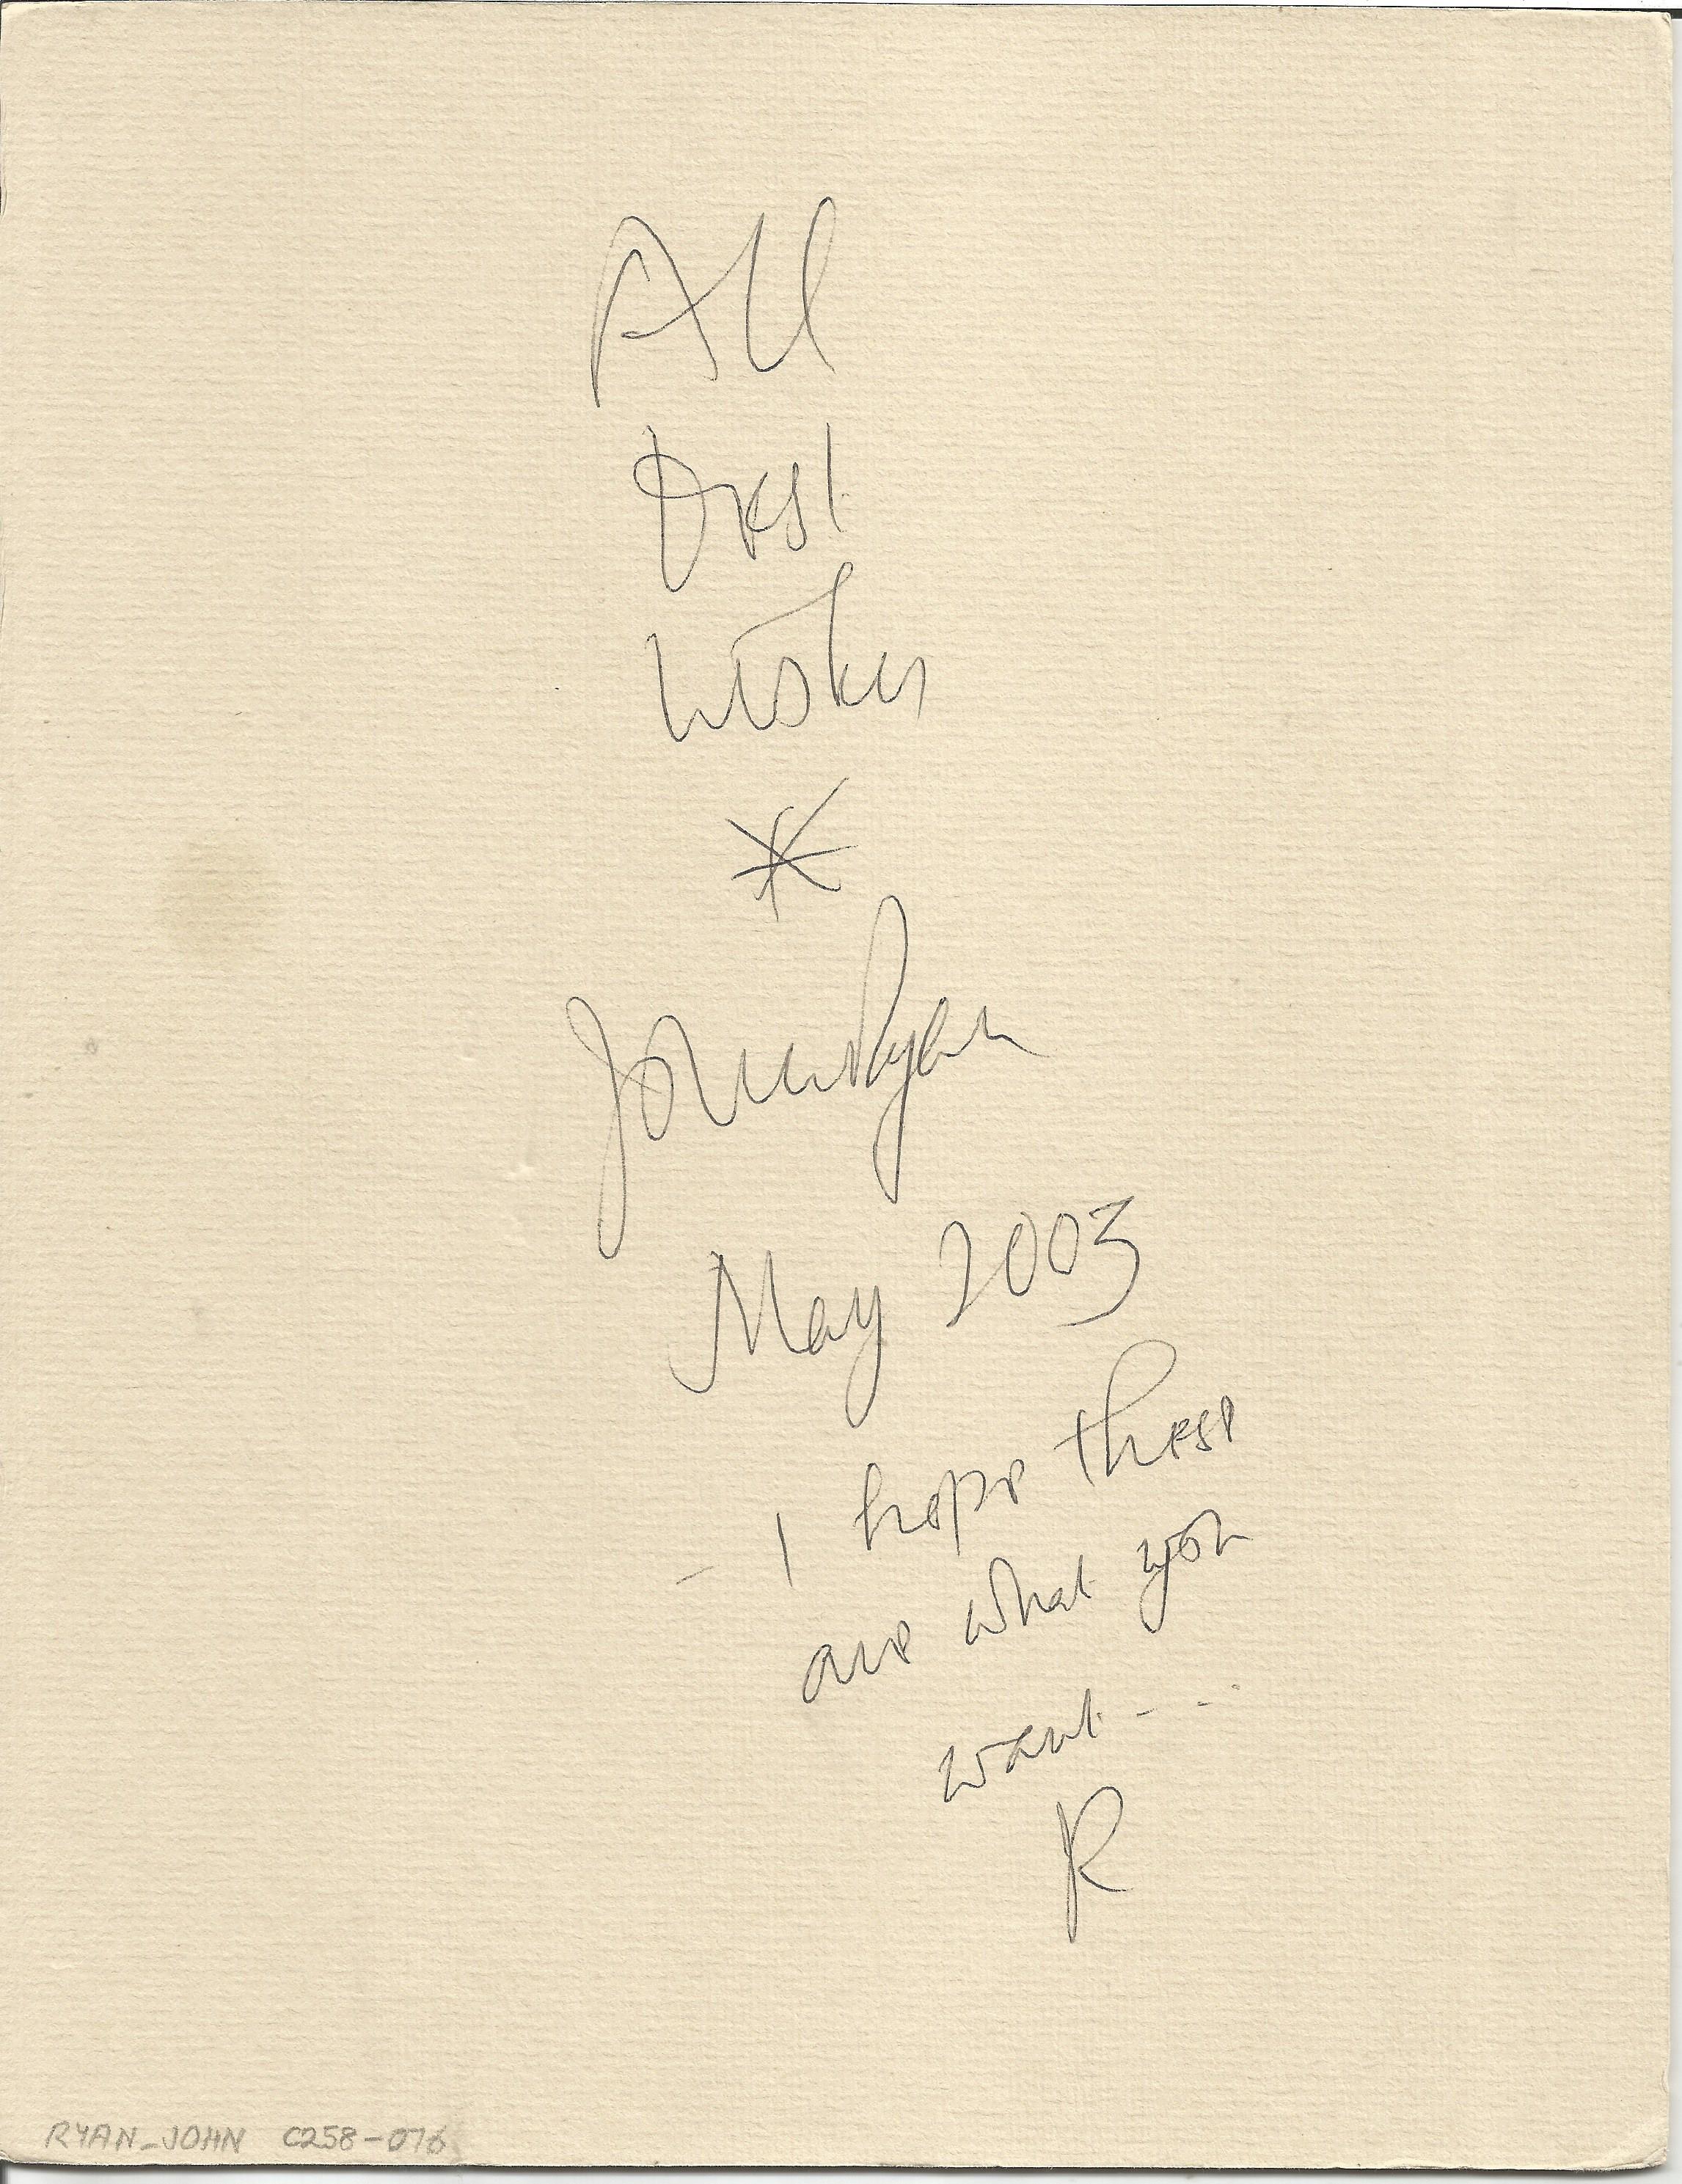 All
Best
Wishes
*
John Ryan
May 2003
- I hope these
are what you
want - - -
R
RYAN_JOHN C258-076